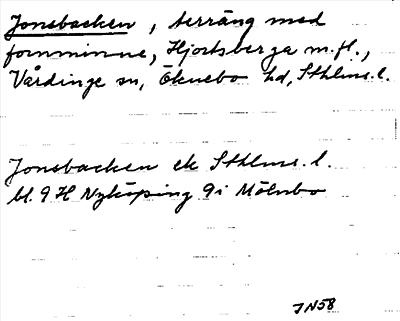 Jonsbacken, terräng med
fornminne, Hjortsberga m.fl.,
Vårdinge sn, Öknebo hd, Sthlms.l.
Jonsbacken ek Sthlms.l.
bl. 9H Nyköping 9i Mölnbo
JN58